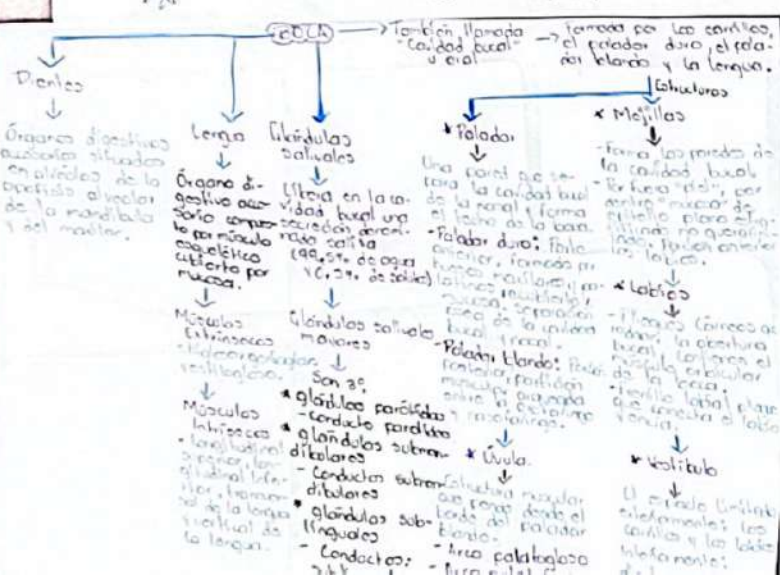 BOCA
También llamada
"Cavidad bucal"
u oral
Formada por los carrillos,
el paladar duro, el pala-
dar blando y la lengua.
Estructuras
Dientes
Órganos digestivos
accesorios situados
en alvéolos de la
apófisis alveolar
de la mandíbula
y del maxilar.
Lengua
Órgano di-
gestivo acce-
sorio compues-
to por músculo
esquelético
cubierto por
mucosa.
Músculos
Extrínsecos
Músculos
Intrínsecos
- longitudinal
superior, lon-
gitudinal infe-
rior, transver-
sal de la lengua
y vertical de
la lengua.
Glándulas
salivales
Libera en la ca-
vidad bucal una
secreción denomi-
nada saliva
(99,5% de agua
y 0,5% de soluto)
Glándulas salivales
mayores
Son 3:
* glándulas parótidas
- conducto parotídeo
* glándulas subman-
dibulares
- Conductos subman-
dibulares
* glándulas sub-
linguales
- Conductos:
* Paladar
Una pared que se-
para la cavidad bucal
de la nasal y forma
el techo de la boca.
- Paladar duro: Parte
anterior, formado por
huesos maxilares y pa-
latinos, recubierto
mucosa, separación
ósea de la cavidad
bucal y nasal.
- Paladar blando: Porción
posterior, partición
muscular arqueada
entre la
y nasofaringe.
* Úvula
Estructura muscular
que desde el
borde del paladar
blando.
- Arco palatogloso
* Mejillas
- Forma las paredes de
la cavidad bucal
- Por fuera "piel", por
dentro "mucosa" de
epitelio plano estra-
tificado no querantini-
zado.
los labios.
* Labios
- Pliegues cárneos al-
rededor la abertura
bucal. Contienen el
músculo orbicular
de la boca.
- Frenillo labial
que conecta el labio
y encía.
* Vestíbulo
El espacio limitado
externamente: los
carrillos y los labios
Internamente: